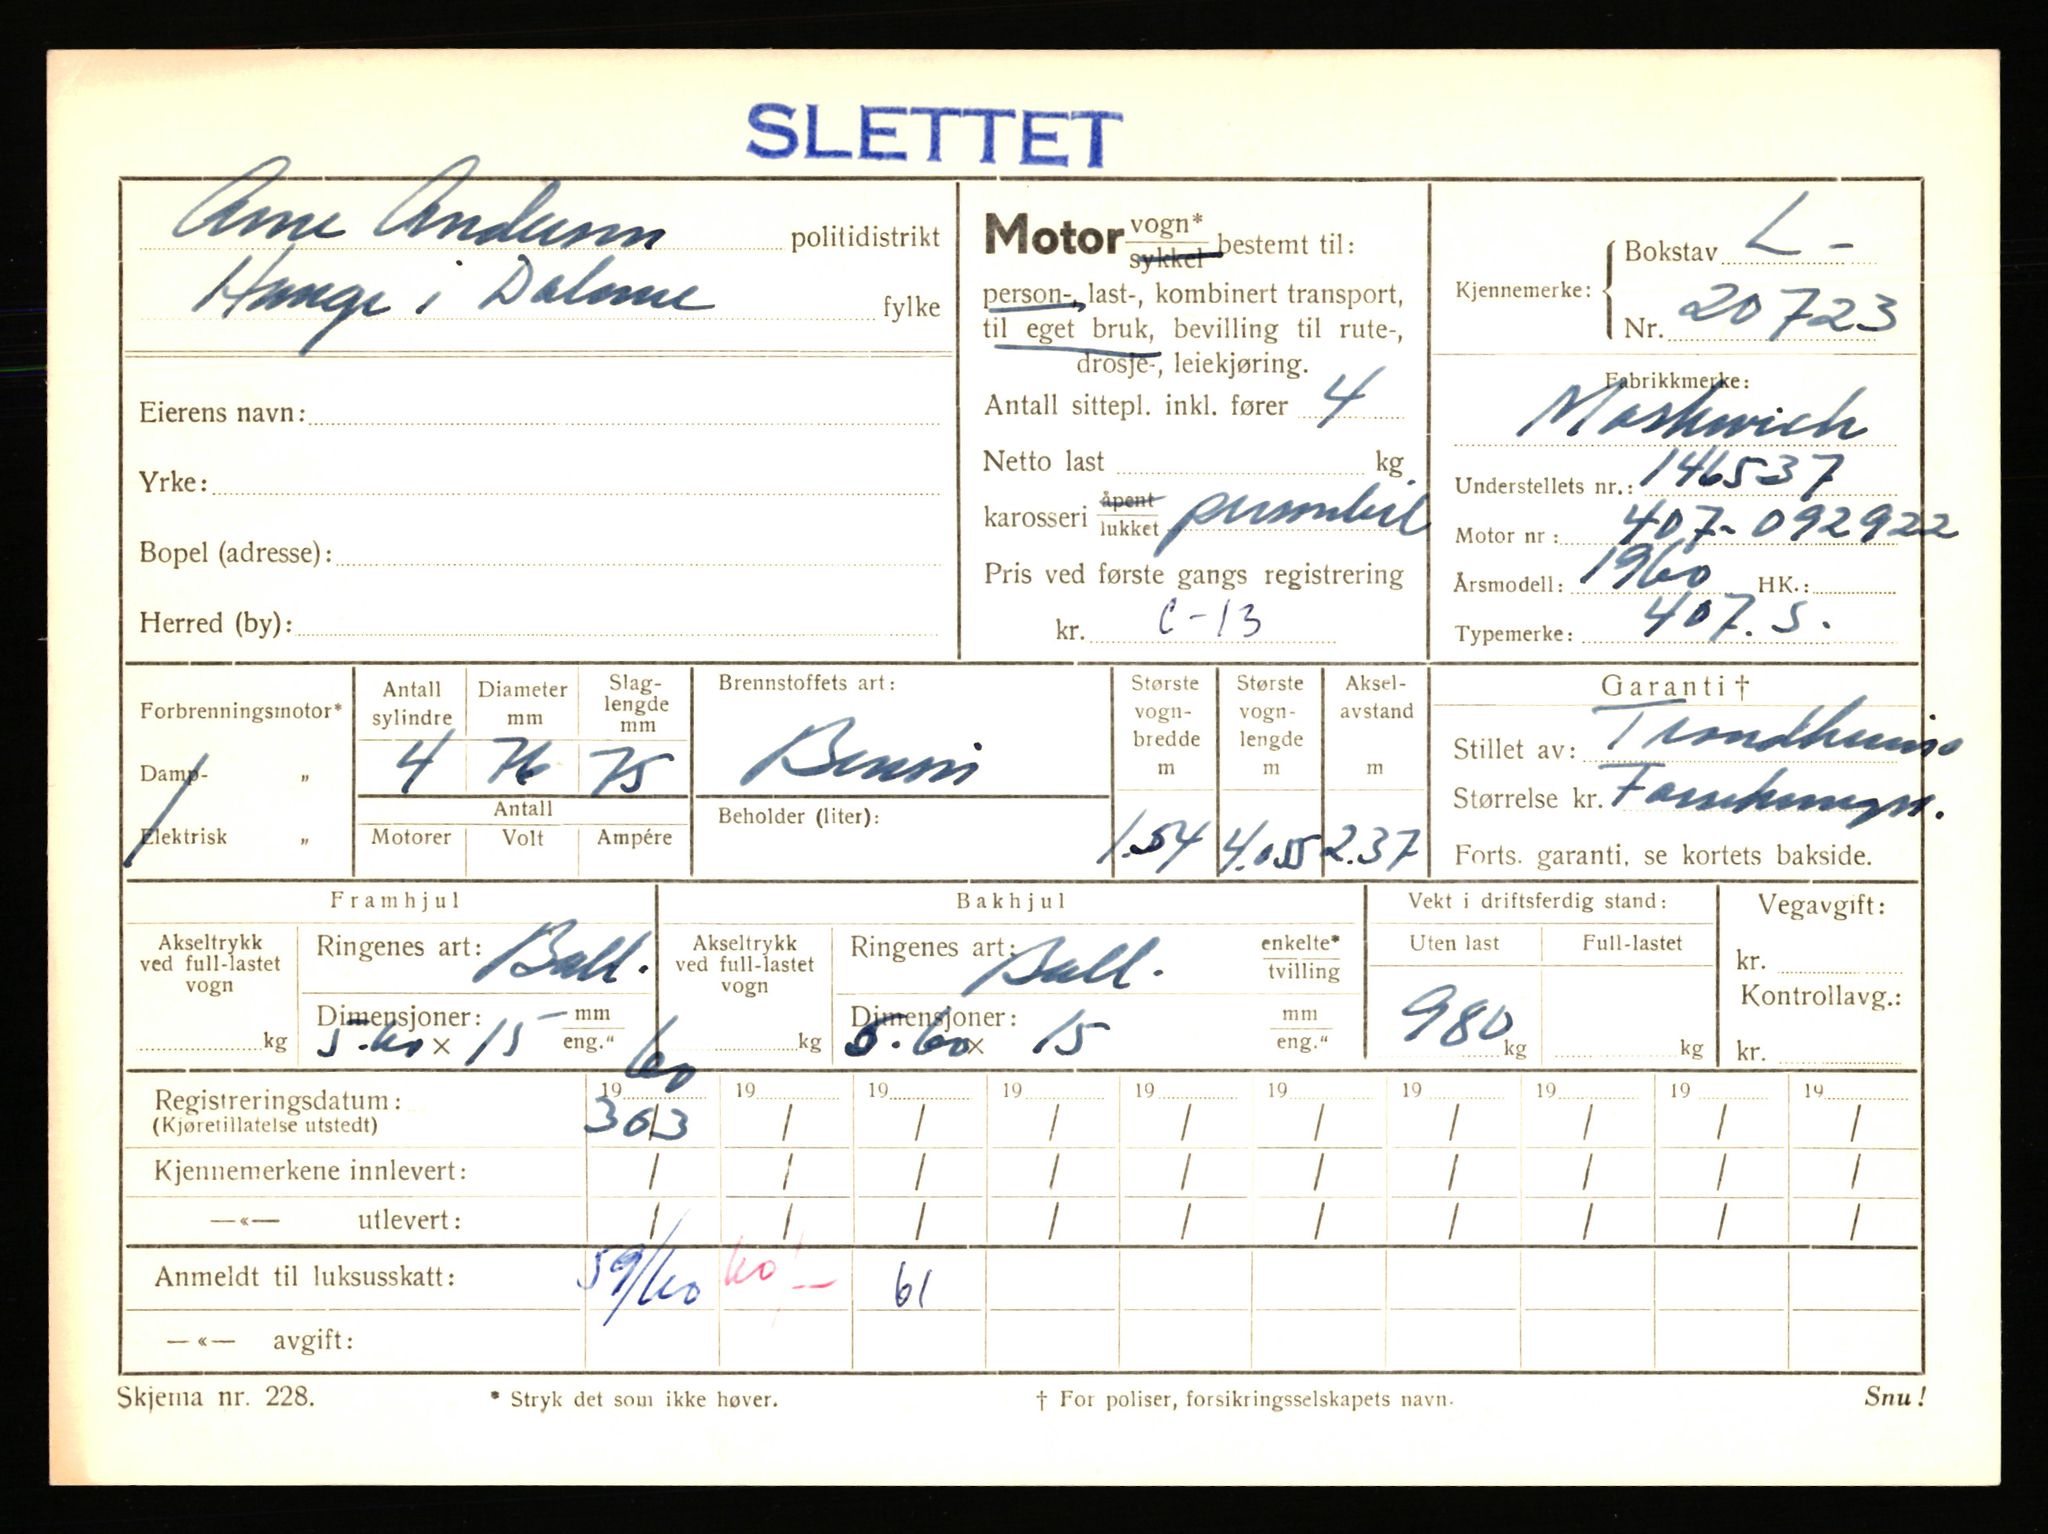 SLETTET
Arne Andersen politidistrikt
Hauge i Dalane fylke
Eierens navn:
Yrke:
Bopel (adresse):
Herred (by):
Motor vogn* sykkel bestemt til:
person-, last-, kombinert transport,
til eget bruk, bevilling til rute-,
drosje-, leiekjøring.
Antall sittepl. inkl. fører 4
Netto last kg
karosseri åpent lukket personbil
Pris ved første gangs registrering
kr. C-13
Kjennemerke: Bokstav L-
Nr. 20723
Fabrikkmerke:
Moskwich
Understellets nr.: 146537
Motor nr: 407-092922
Årsmodell: 1960 HK.:
Typemerke: 407. S.
Forbrenningsmotor*
Damp- „
Elektrisk „
Antall sylindre 4
Diameter mm 76
Slag-lengde mm 75
Antall
Motorer Volt Ampére
Brennstoffets art:
Bensin
Beholder (liter):
Største vogn-bredde m 1.54
Største vogn-lengde m 4.055
Aksel-avstand m 2.37
Garanti †
Stillet av: Trondhjems
Størrelse kr. Forsikringss.
Forts. garanti, se kortets bakside.
Framhjul
Akseltrykk ved full-lastet vogn kg
Ringenes art: Ball.
Dimensjoner: 5.60 x 15 mm eng."
Bakhjul
Akseltrykk ved full-lastet vogn kg
Ringenes art: Ball. enkelte* tvilling
Dimensjoner: 5.60 x 15 mm eng."
Vekt i driftsferdig stand:
Uten last Full-lastet
980 kg kg
Vegavgift:
kr.
Kontrollavg.:
kr.
Registreringsdatum: 1960 19 19 19 19 19 19 19 19 19
(Kjøretillatelse utstedt) 30/3 / / / / / / / / /
Kjennemerkene innlevert: / / / / / / / / / /
—«— utlevert: / / / / / / / / / /
Anmeldt til luksusskatt: 59/60 60 — 61
—«— avgift:
Skjema nr. 228. * Stryk det som ikke høver. † For poliser, forsikringsselskapets navn. Snu!